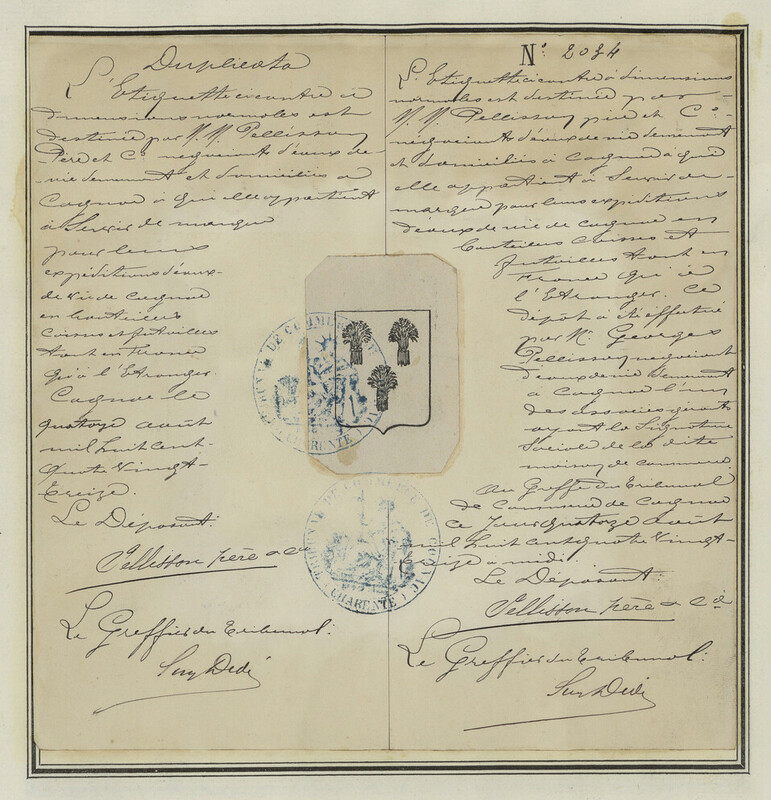 Duplicata
L'Etiquette ci contre à
dimensions normales est
destinée par M.M. Pellisson
Père et Cº négociants d'eaux-de-
vie demeurant et domiciliés à
Cognac à qui elle appartient
à Servir de marque
pour leurs
expéditions d'eaux-
de vie de Cognac
en bouteilles
Caisses et futailles
tant en France
qu'à l'Etranger.
Cognac le
quatorze août
mil huit cent
Quatre Vingt-
Treize.
Le Déposant.
Pellisson Père & Cie
Le Greffier du Tribunal.
Nº 2034
L'Etiquette ci contre à dimensions
normales est destinée par
M.M. Pellisson père et Cº
négociants d'eaux de vie demeurant
et domiciliés à Cognac à qui
elle appartient à Servir de
marque pour leurs expéditions
d'eaux de vie de Cognac en
bouteilles Caisses et
futailles tant en
France qu'à
l'Etranger. Ce
dépôt a été effectué
par Mr. Georges
Pellisson négociant
d'eaux de vie demeurant
à Cognac l'un
des associés gérants
ayant la Signature
Sociale de la dite
maison de commerce.
Au Greffe du Tribunal
de Commerce de Cognac
ce jour quatorze août
mil huit cent quatre Vingt-
Treize à midi.
Le Déposant.
Pellisson Père & Cie
Le Greffier du Tribunal.
TRIBUNAL DE COMMERCE DE COGNAC
CHARENTE
TRIBUNAL DE COMMERCE DE COGNAC
CHARENTE